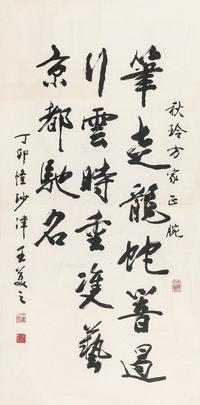 秋玲方家正腕
筆走龍蛇響遏
行雲時重雙藝
京都馳名
丁卯隆沙津王美之